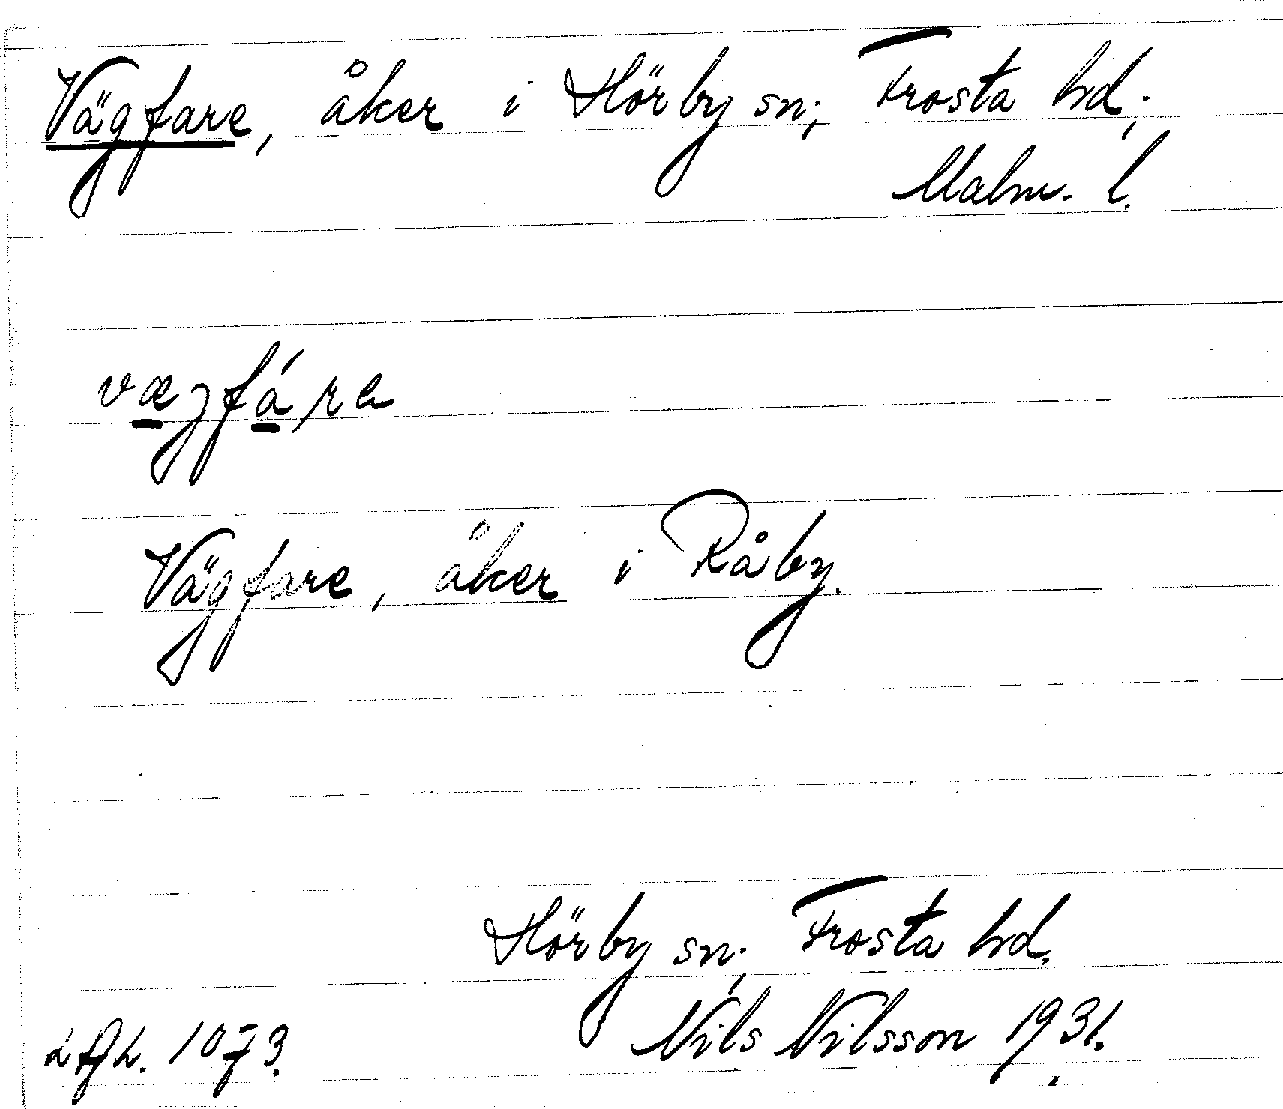 Vägfare, åker i Hörby sn; Frosta hd;
Malm. l.
Vägfare, åker i Råby.
Hörby sn; Frosta hd.
Nils Nilsson 1931.
1073.